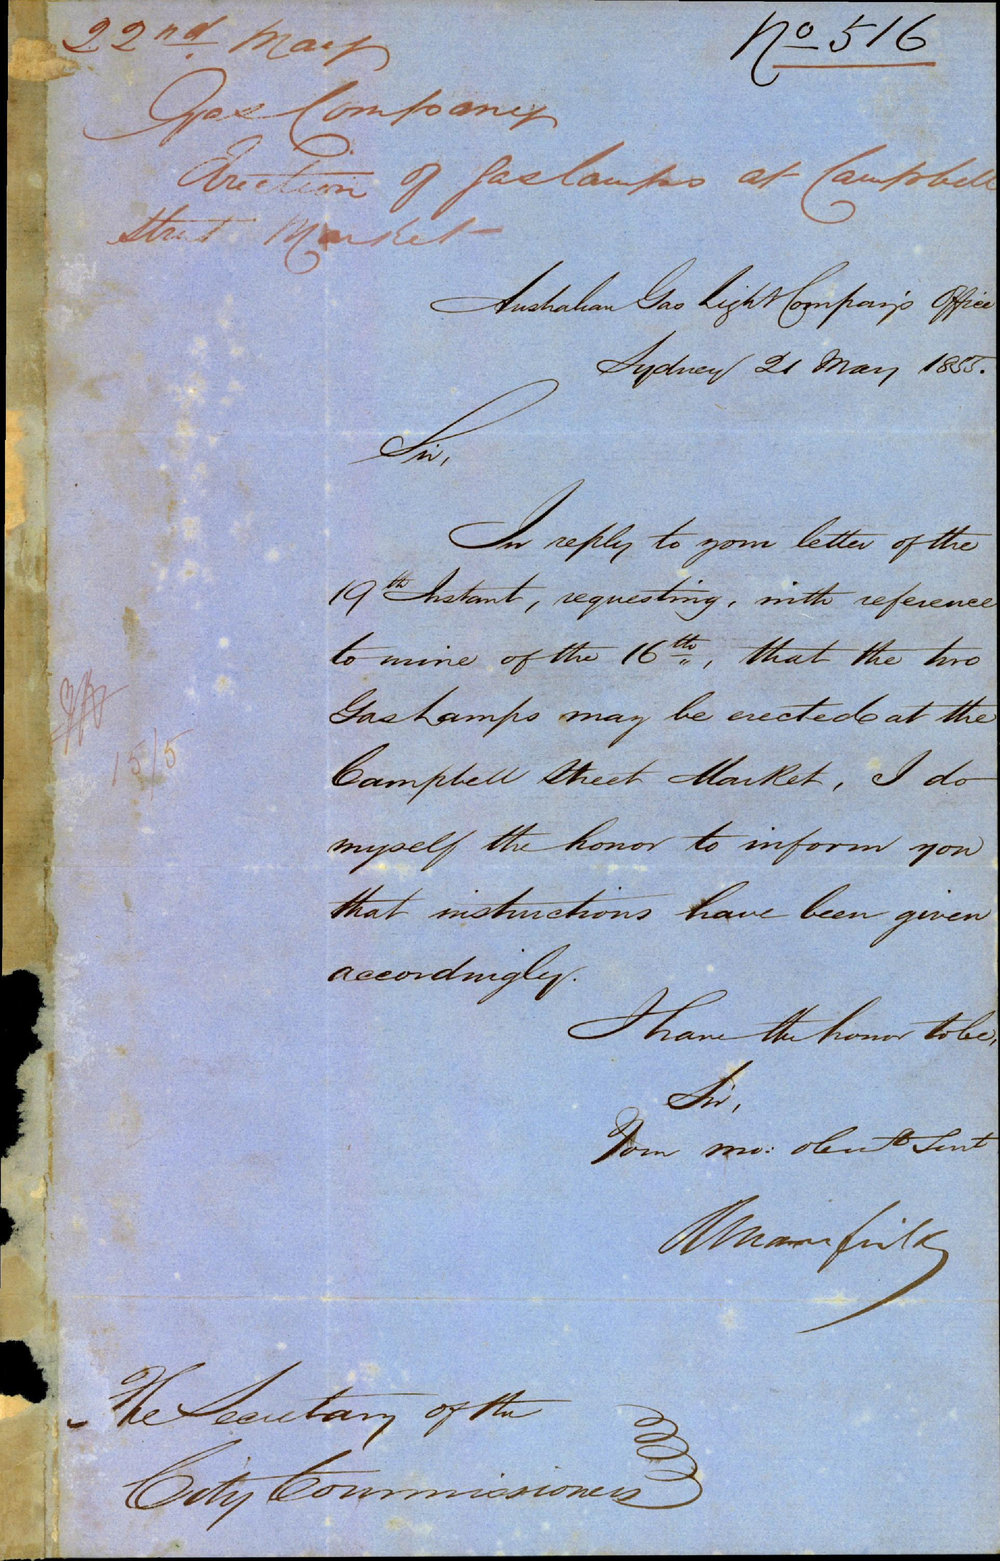 22nd May
No 516
Gas Company
Erection of gas lamps at Campbell
Street Market
Australian Gas Light Company's Office
Sydney 21 May 1855.
Sir,
In reply to your letter of the
19th Instant, requesting, with reference
to mine of the 16th, that the two
Gas Lamps may be erected at the
Campbell Street Market, I do
myself the honor to inform you
that instructions have been given
accordingly.
15/5
I have the honor to be,
Sir,
Your mo: obedt Servt
The Secretary of the
City Commissioners